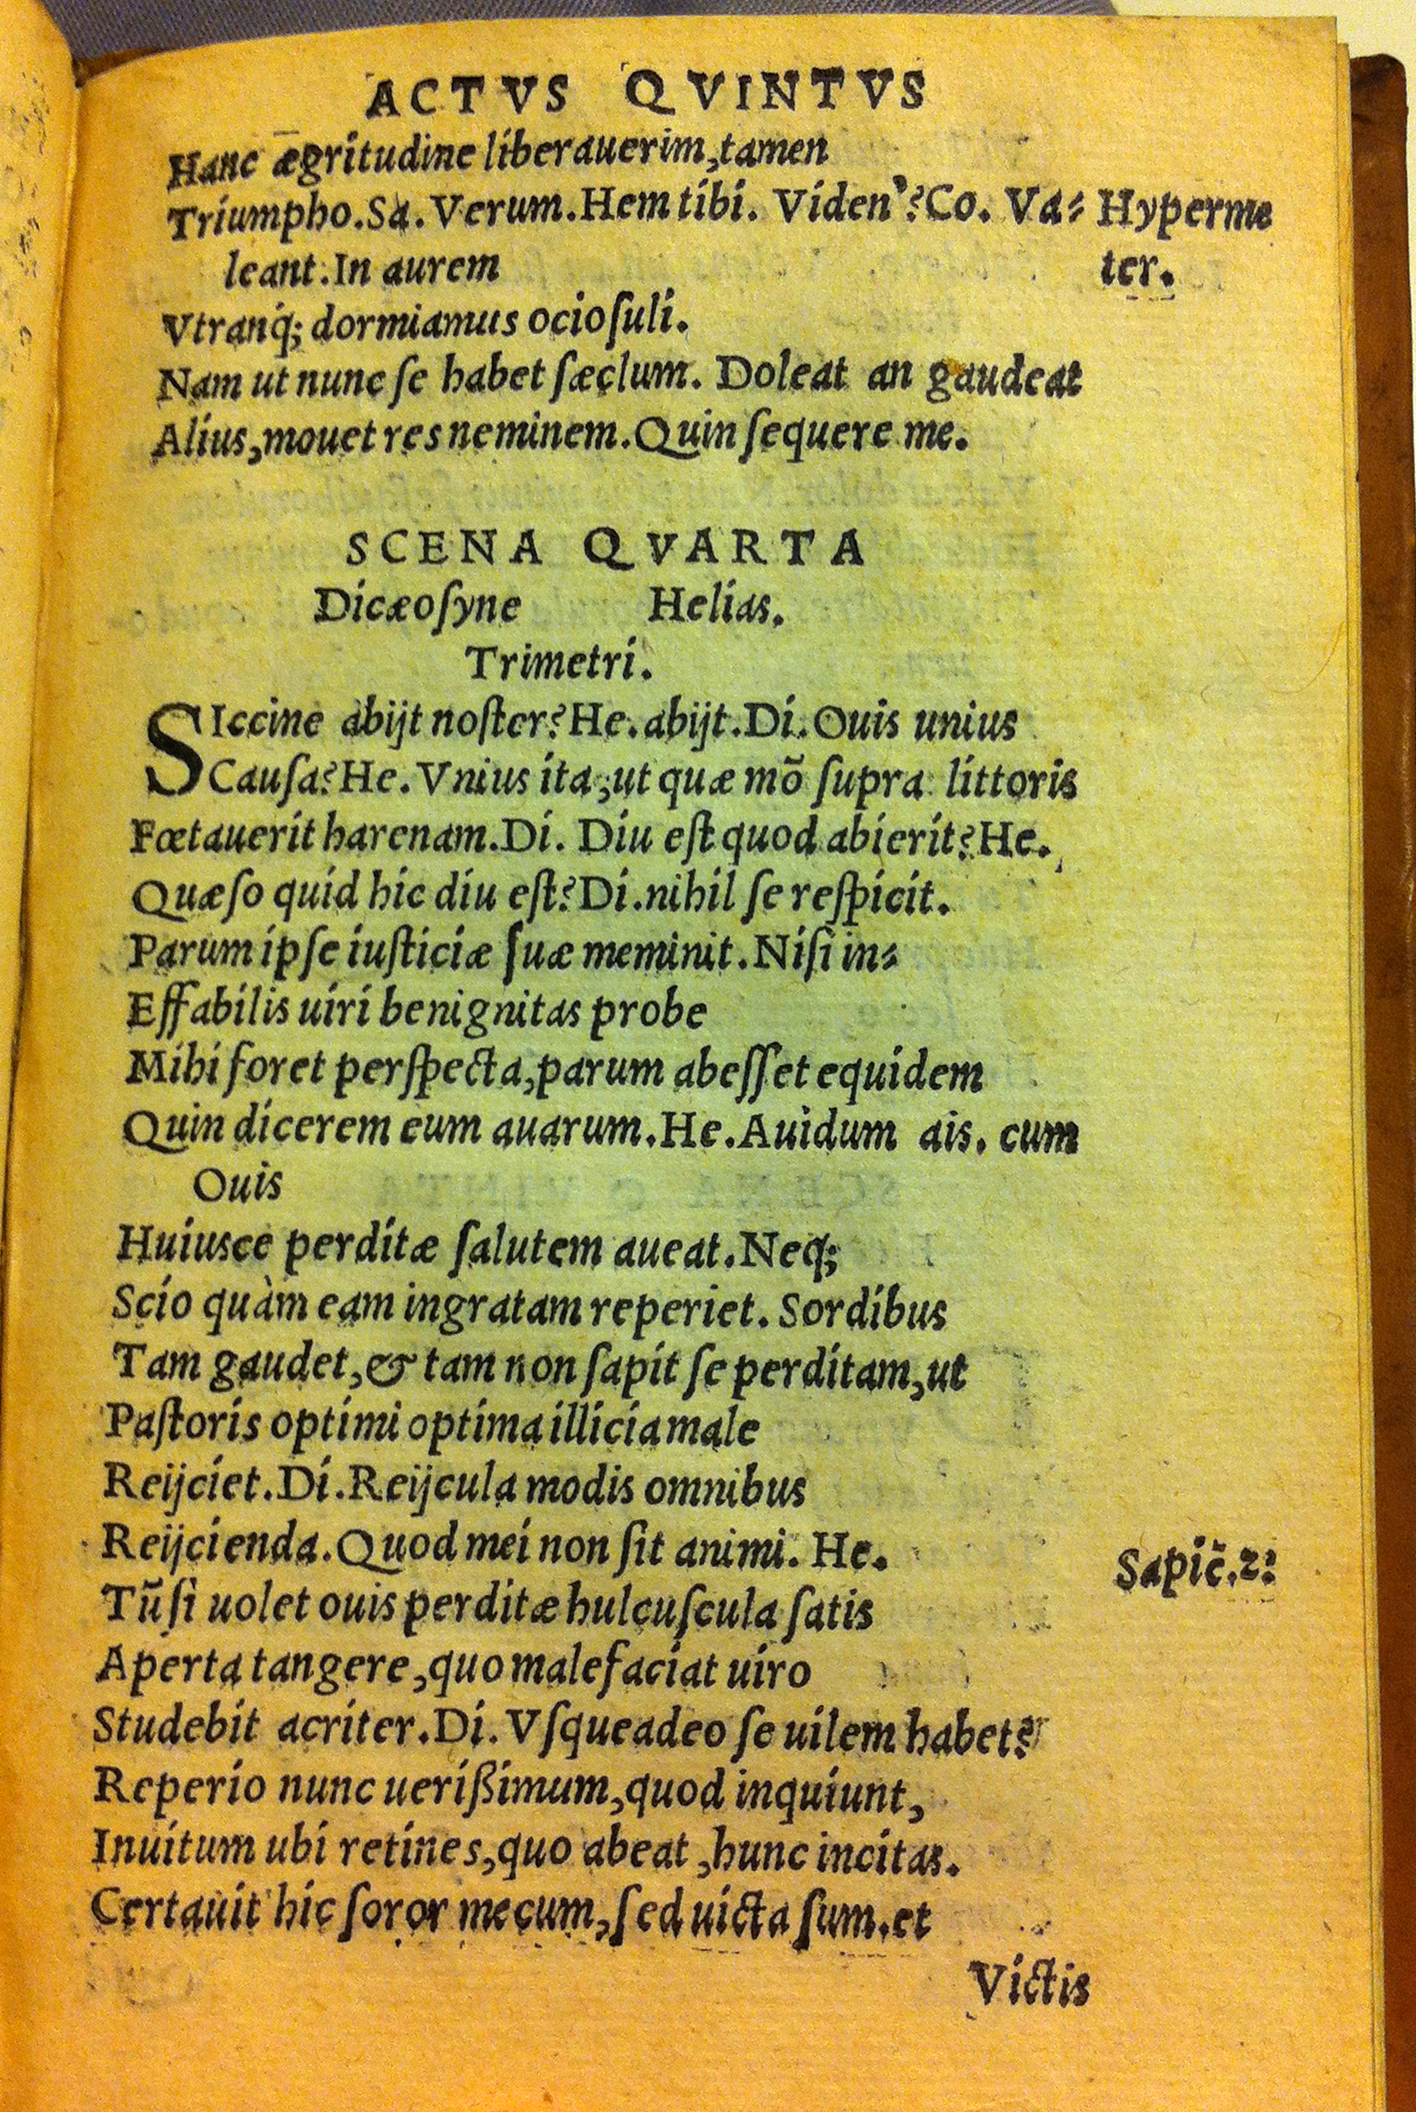 ACTVS QVINTVS
Hanc ægritudine liberauerim, tamen
Triumpho. Sa. Verum. Hem tibi. Viden'? Co. Va⸗ Hyperme
leant. In aurem ter.
Vtranq́; dormiamus ociosuli.
Nam ut nunc se habet sæclum. Doleat an gaudeat
Alius, mouet res neminem. Quin sequere me.
SCENA QVARTA
Dicæosyne Helias.
Trimetri.
SIccine abijt noster? He. abijt. Di. Ouis unius
Causa? He. Vnius ita, ut quæ mõ supra littoris
Fœtauerit harenam. Di. Diu est quod abierit? He.
Quæso quid hic diu est? Di. nihil se respicit.
Parum ipse iusticiæ suæ meminit. Nisi in⸗
Effabilis uiri benignitas probe
Mihi foret perspecta, parum abesset equidem
Quin dicerem eum auarum. He. Auidum ais. cum
Ouis
Huiusce perditæ salutem aueat. Neq;
Scio quàm eam ingratam reperiet. Sordibus
Tam gaudet, & tam non sapit se perditam, ut
Pastoris optimi optima illicia male
Reijciet. Di. Reijcula modis omnibus
Reijcienda. Quod mei non sit animi. He. Sapic̃. 2:
Tũ si uolet ouis perditæ hulcuscula satis
Aperta tangere, quo malefaciat uiro
Studebit acriter. Di. Vsqueadeo se uilem habet?
Reperio nunc uerißimum, quod inquiunt,
Inuitum ubi retines, quo abeat, hunc incitas.
Certauit hic soror mecum, sed uicta sum. et
Victis